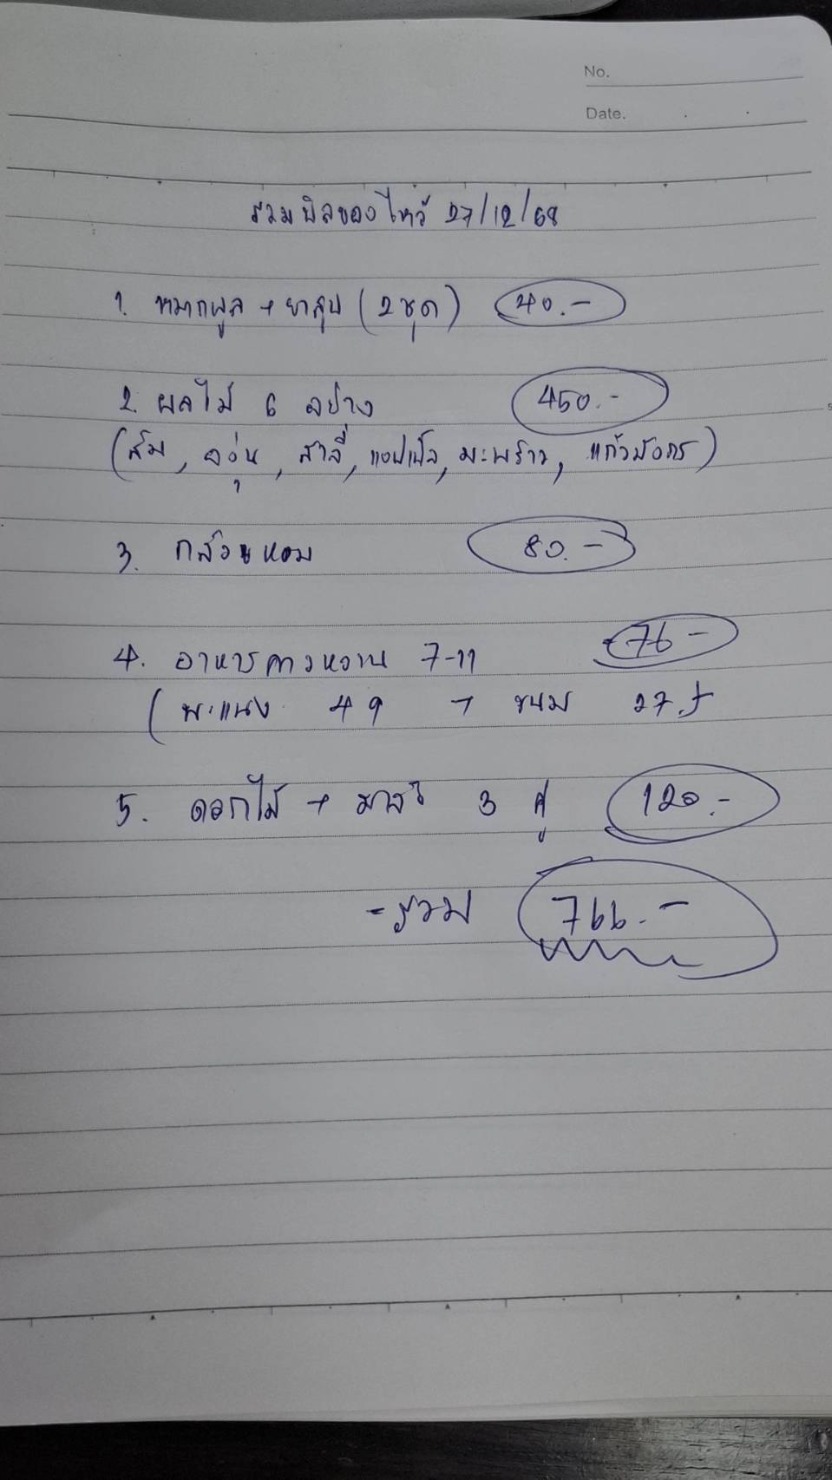 No.
Date.
รวมบิลของไหว้ 27/12/68
1. หมากพูล + ยาสูบ (2 ชุด) 40.-
2. ผลไม้ 6 อย่าง 450.-
(ส้ม, องุ่น, สาลี่, แอปเปิ้ล, มะพร้าว, แก้วมังกร)
3. กล้วยหอม 80.-
4. อาหารคาวหวาน 7-11 76-
(พะแนง 49 + ขนม 27.-)
5. ดอกไม้ + มาลัย 3 คู่ 120.-
- รวม 766.-